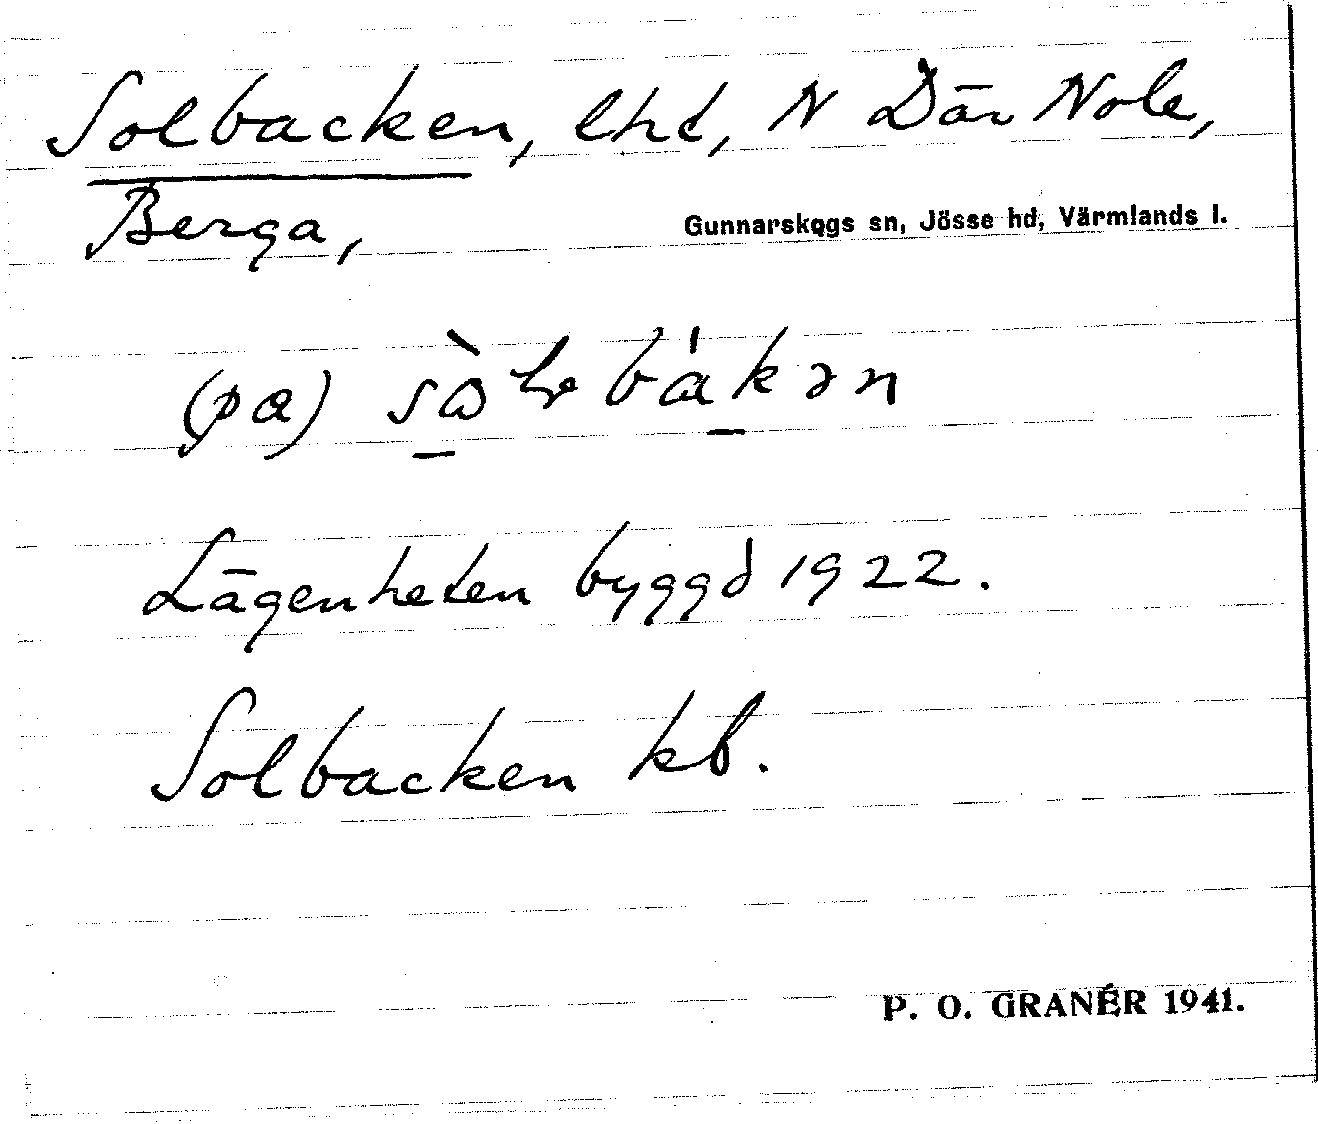 Solbacken, lht, N Där Nole,
Berga,
Gunnarskogs sn, Jösse hd, Värmlands l.
(pa)
Lägenheten byggd 1922.
Solbacken kb.
P. O. GRANÉR 1941.